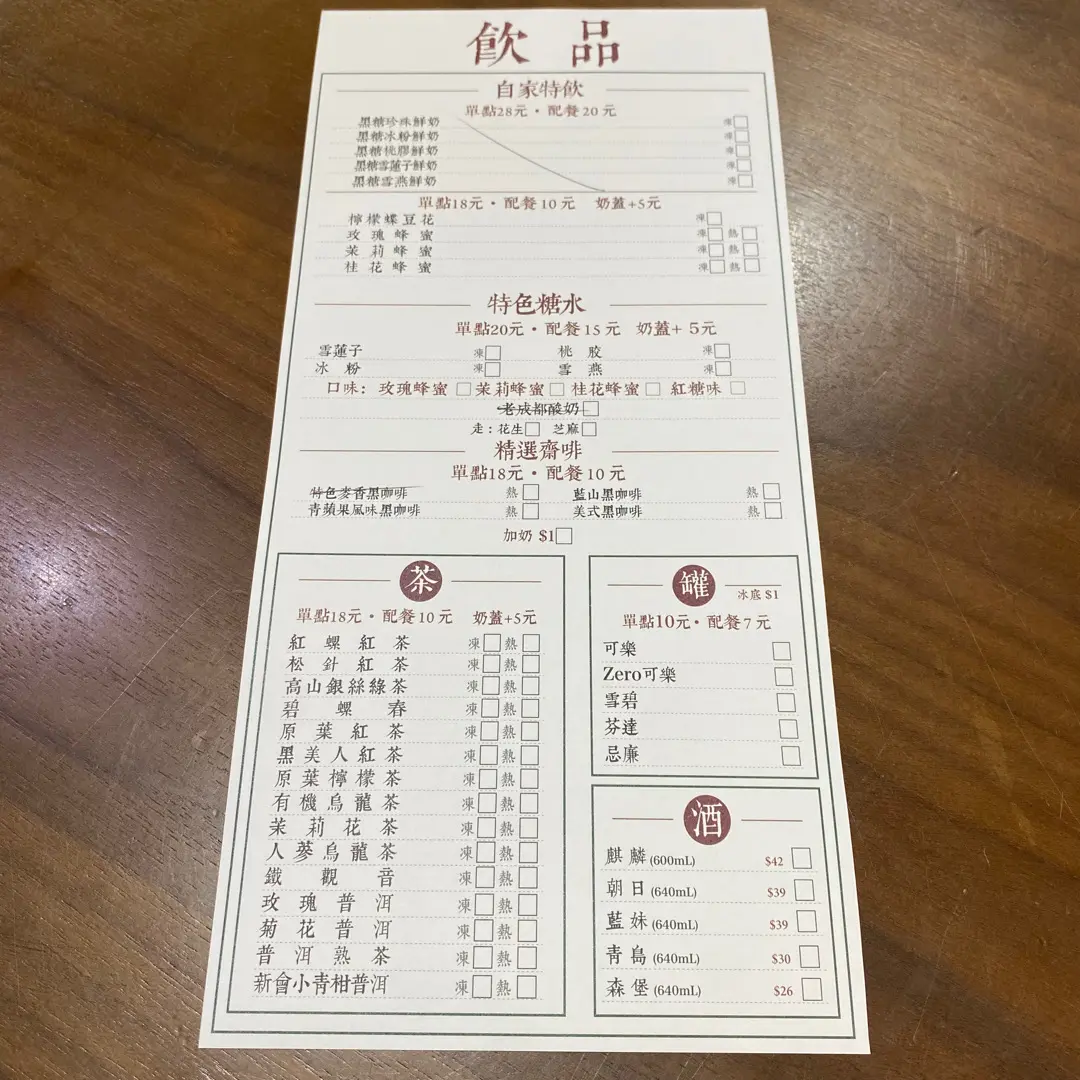 飲品
自家特飲
單點28元・配餐20元
黑糖珍珠鮮奶 凍
黑糖冰粉鮮奶 凍
黑糖桃膠鮮奶 凍
黑糖雪蓮子鮮奶 凍
黑糖雪燕鮮奶 凍
單點18元・配餐10元 奶蓋+5元
檸檬蝶豆花 凍
玫瑰蜂蜜 凍 熱
茉莉蜂蜜 凍 熱
桂花蜂蜜 凍 熱
特色糖水
單點20元・配餐15元 奶蓋+5元
雪蓮子 凍 桃胶 凍
冰粉 凍 雪燕 凍
口味：玫瑰蜂蜜 茉莉蜂蜜 桂花蜂蜜 紅糖味
老成都酸奶
走：花生 芝麻
精選齋啡
單點18元・配餐10元
特色麥香黑咖啡 熱 藍山黑咖啡 熱
青蘋果風味黑咖啡 熱 美式黑咖啡 熱
加奶 $1
茶
單點18元・配餐10元 奶蓋+5元
紅螺紅茶 凍 熱
松針紅茶 凍 熱
高山銀絲綠茶 凍 熱
碧螺春 凍 熱
原葉紅茶 凍 熱
黑美人紅茶 凍 熱
原葉檸檬茶 凍 熱
有機烏龍茶 凍 熱
茉莉花茶 凍 熱
人蔘烏龍茶 凍 熱
鐵觀音 凍 熱
玫瑰普洱 凍 熱
菊花普洱 凍 熱
普洱熟茶 凍 熱
新會小青柑普洱 凍 熱
罐 冰底 $1
單點10元・配餐7元
可樂
Zero可樂
雪碧
芬達
忌廉
酒
麒麟 (600mL) $42
朝日 (640mL) $39
藍妹 (640mL) $39
青島 (640mL) $30
森堡 (640mL) $26